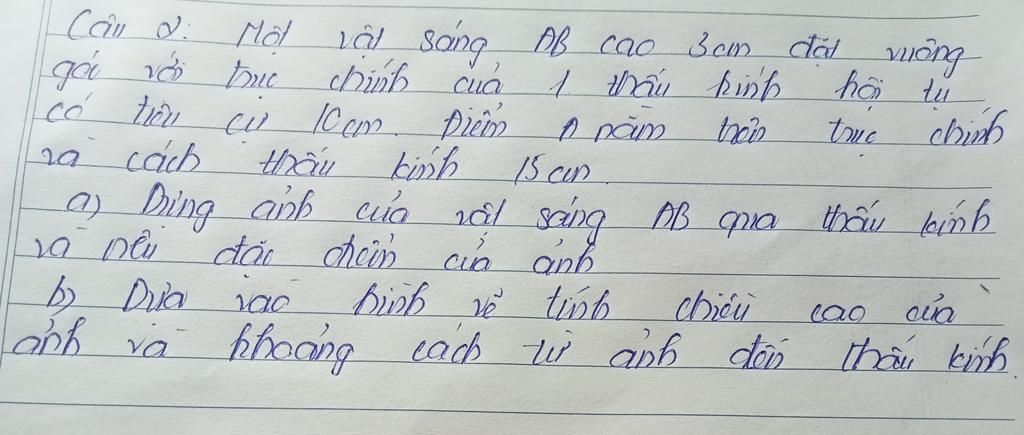 Câu 2: Một vật sáng AB cao 3cm đặt vuông
góc với trục chính của 1 thấu kính hội tụ
có tiêu cự 10cm. Điểm A nằm trên trục chính
và cách thấu kính 15cm
a) Dựng ảnh của vật sáng AB qua thấu kính
và nêu đặc điểm của ảnh
b) Dựa vào hình vẽ tính chiều cao của
ảnh và khoảng cách từ ảnh đến thấu kính.